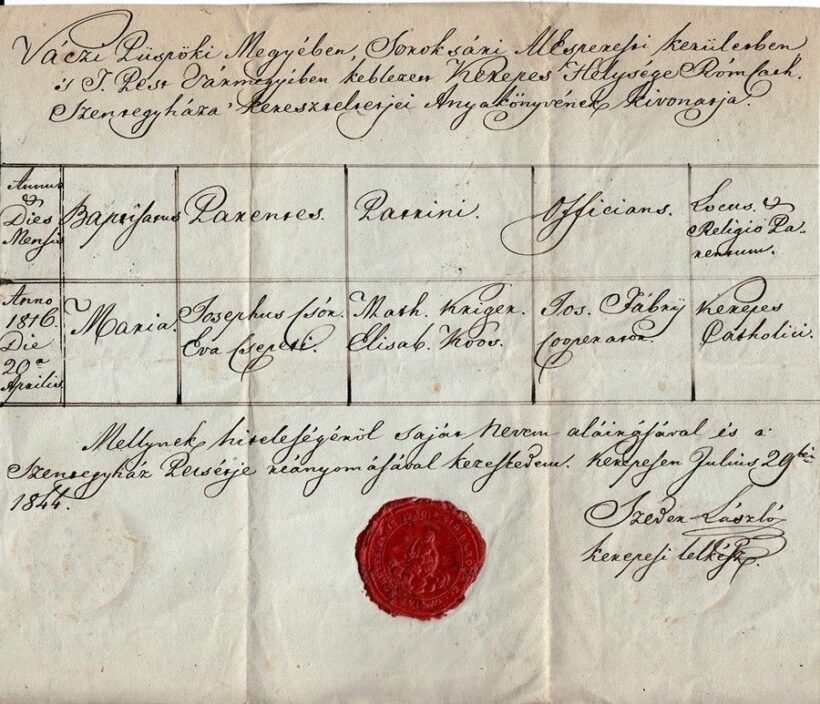 Váczi Püspöki Megyében, Soroksári Alesperesti kerületben
és T. Pest Varmegyében keblezett Kerepes Helysége Róm. Cath.
Szentegyháza kereszteltjei Anyakönyvének kivonatja.
Annus & Dies Mensis
Baptisatus
Parentes.
Patrini.
Officians.
Locus & Religio Parentum.
Anno 1816. Die 20a Aprilis.
Maria.
Josephus Csór.
Eva Csepeti.
Math. Kriger.
Elisab. Koos.
Jos. Fábry
Cooperator.
Kerepes
Catholici.
Mellynek hiteleségéről saját Nevem aláirásával és a
Szentegyház Pecsétje reányomásával kezeskedem. Kerepesen Julius 29tén
1844.
Szeder László
kerepesi lelkész.